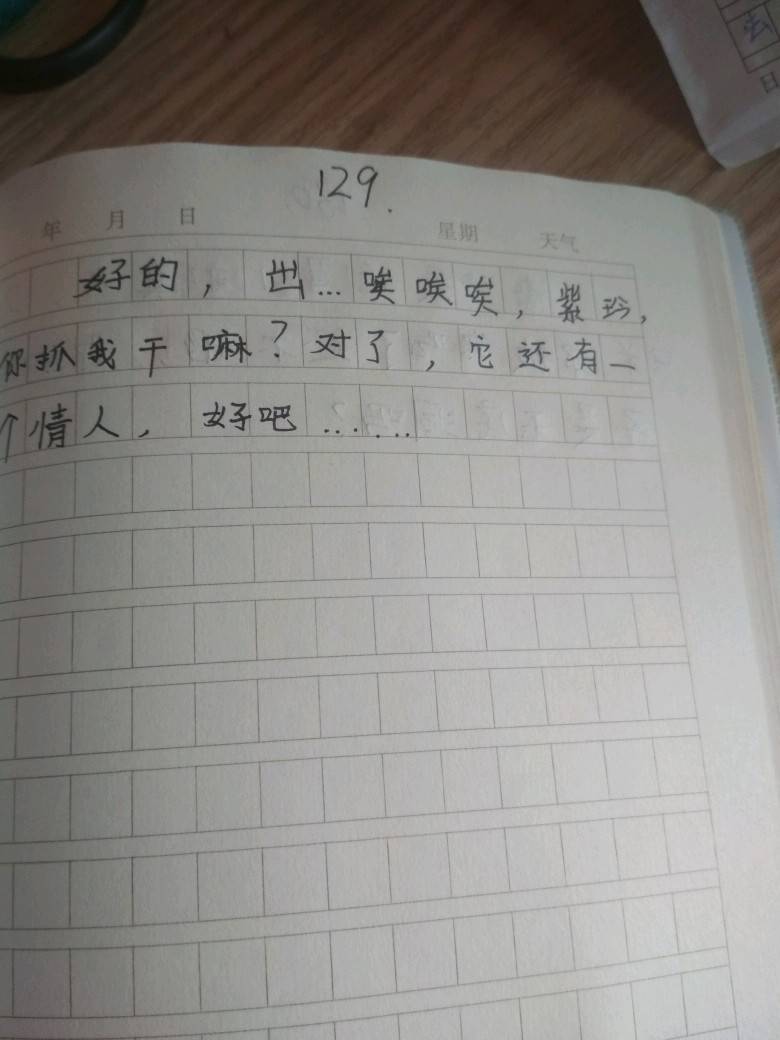 129.
年 月 日 星期 天气
好的，出...唉唉唉，紫玲，
你抓我干嘛？对了，它还有一
个情人，好吧......
去
日